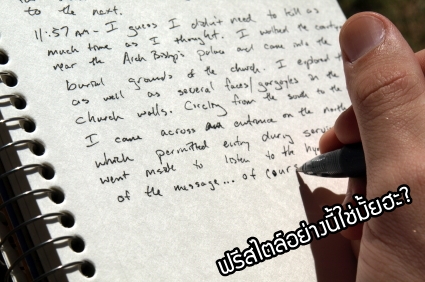 to the next.
11:57 am - I guess I didn't need to kill as
much time as I thought. I walked the country
near the Arch Bishop's palace and came into the
burial grounds of the church. I explored the
as well as several faces/gargoyles in the
church walls. Circling from the south to the
I came across an entrance on the north
which permitted entry during serv
went inside to listen to the hym
of the message... of cours
ฟรีสไตล์อย่างนี้ใช่มั้ยฮะ?